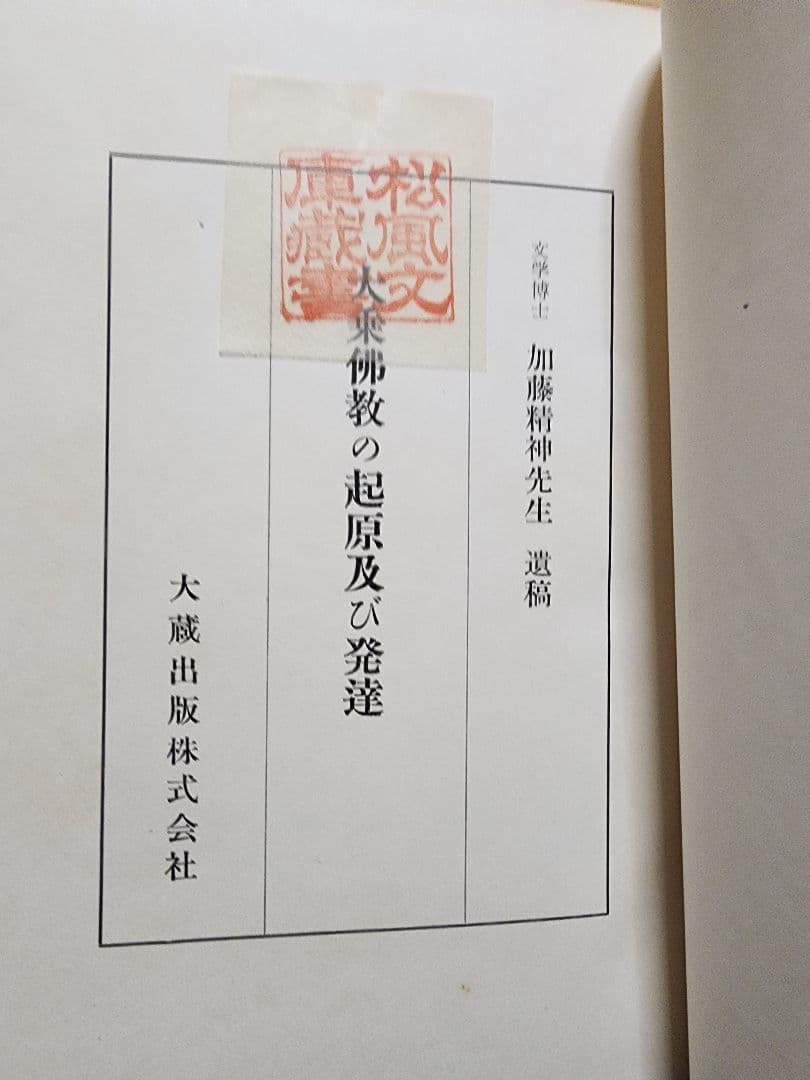 文学博士 加藤精神先生 遺稿
松風文
庫蔵書
大乗佛教の起原及び発達
大蔵出版株式会社